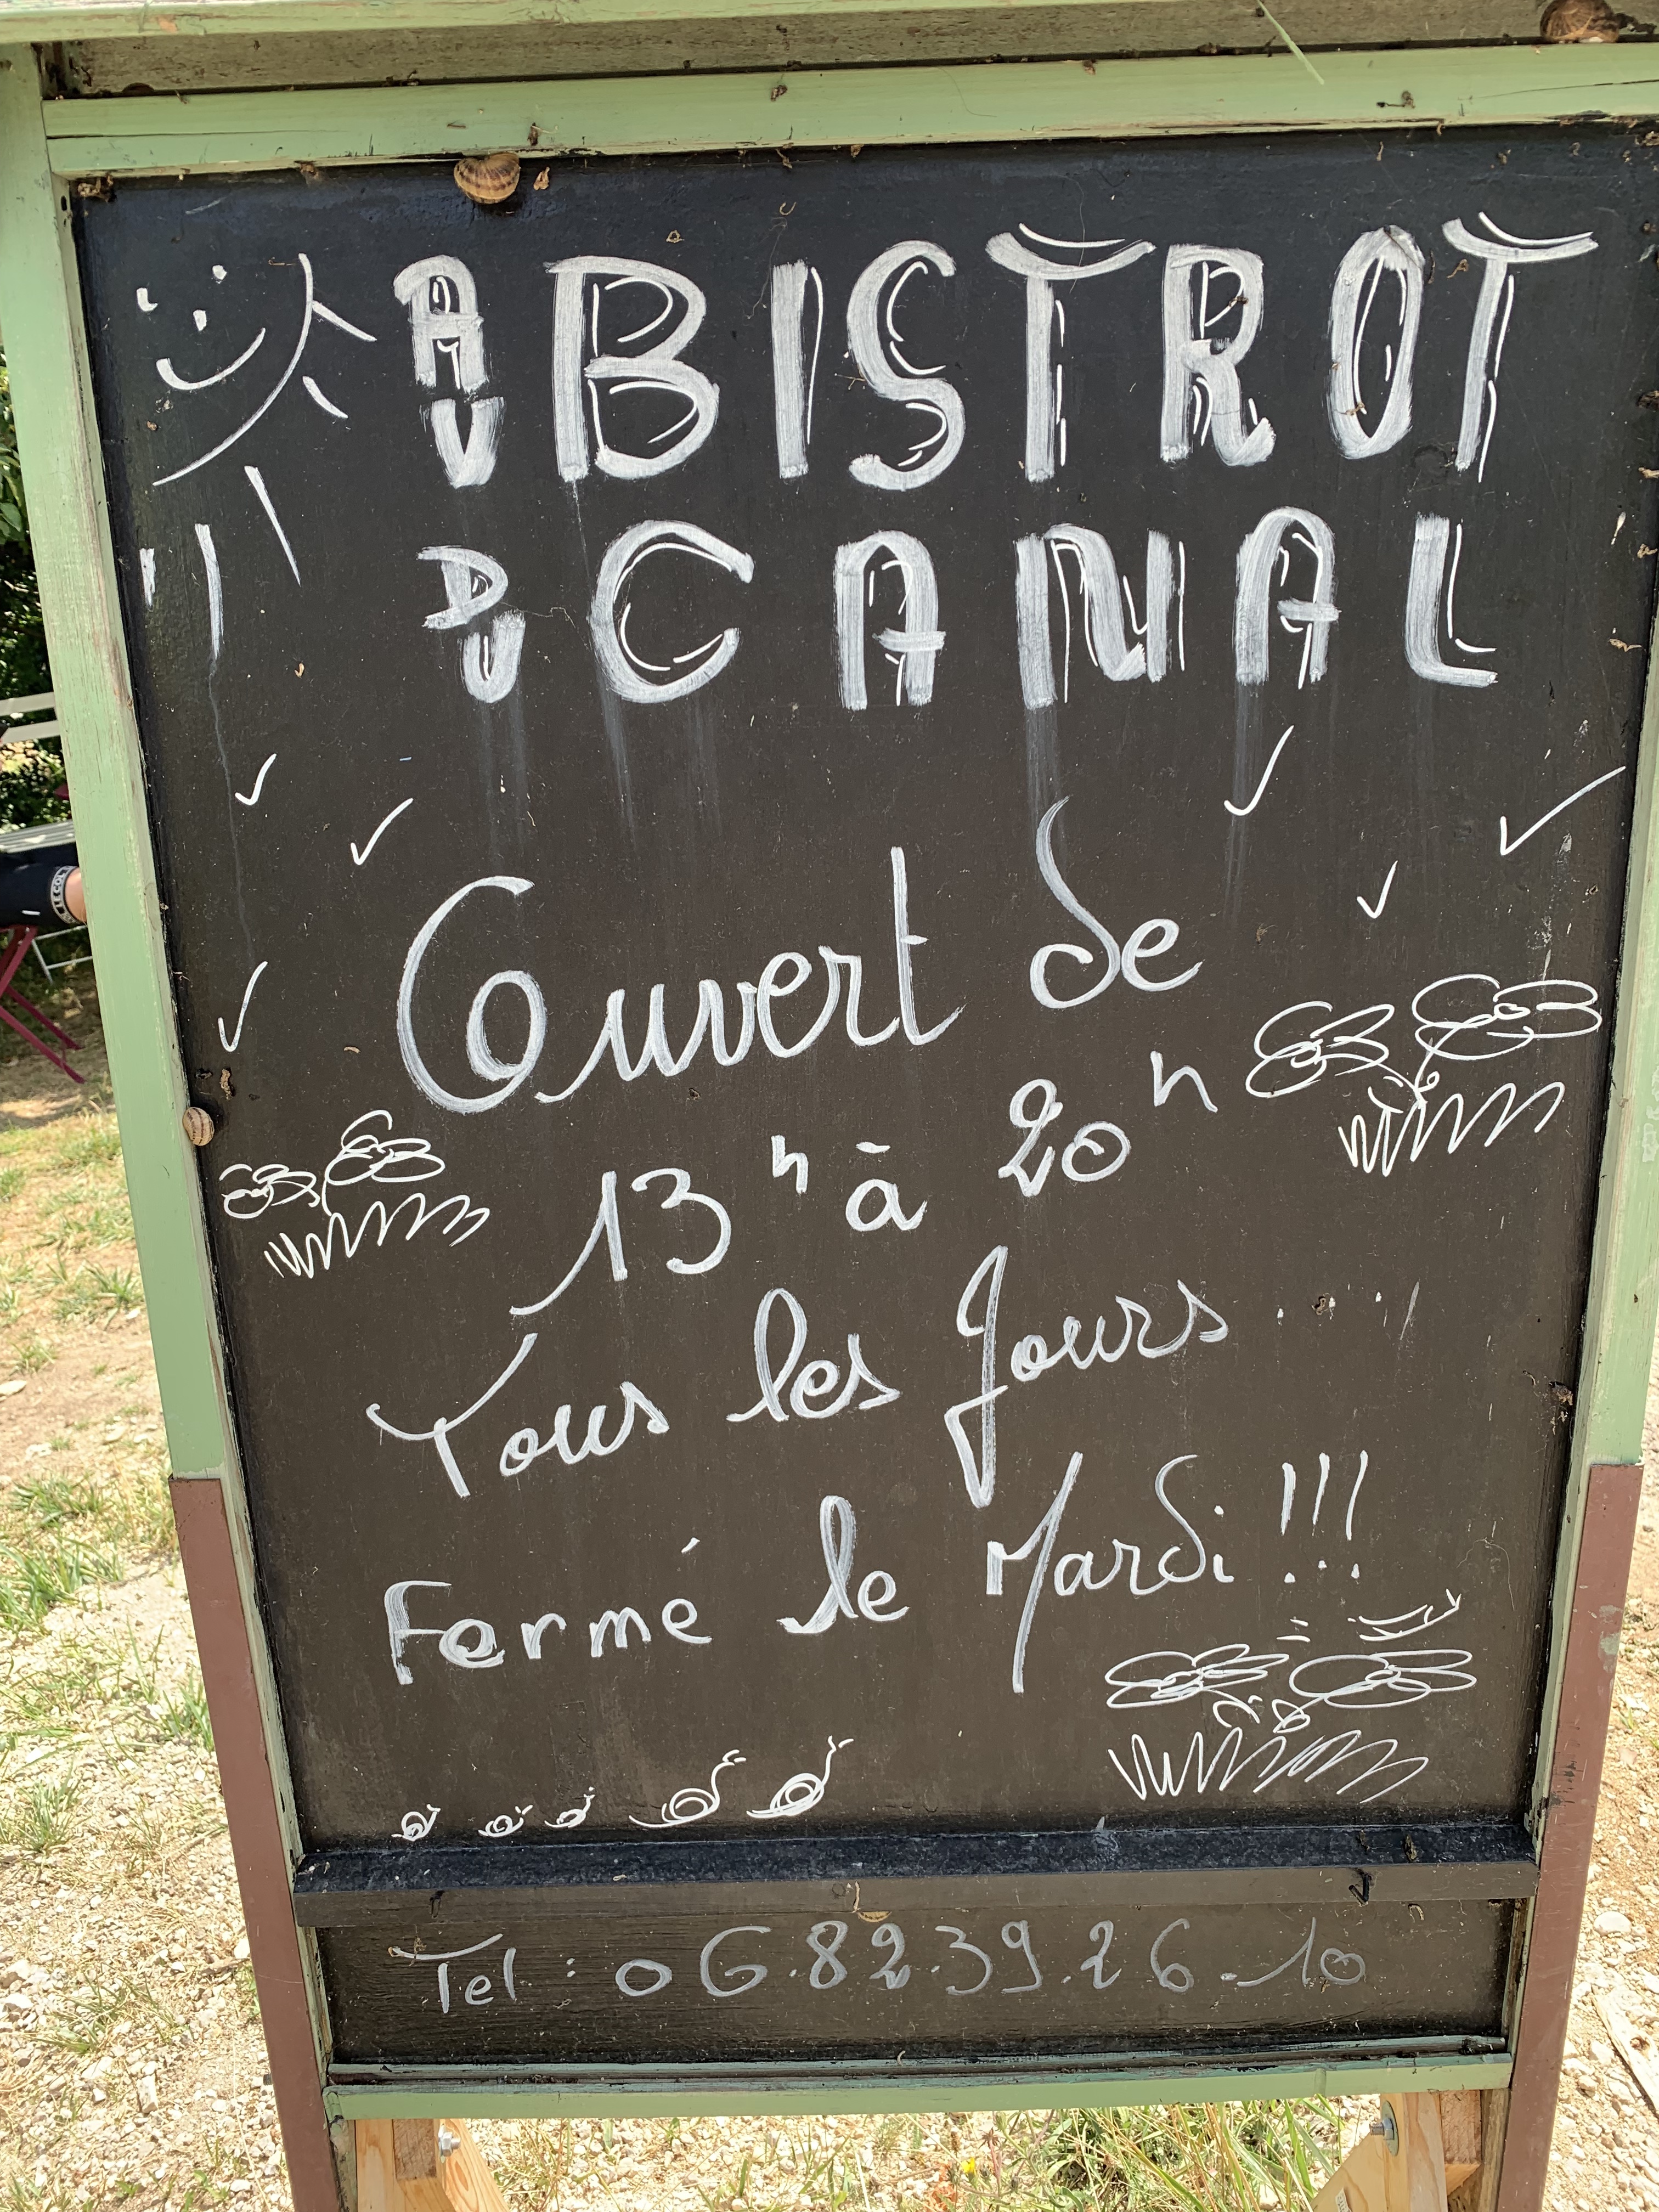 AU BISTROT
DU CANAL
Ouvert de
13h à 20h
Tous les Jours ...
Fermé le Mardi !!!
Tel : 06.82.39.26.10
LE COL